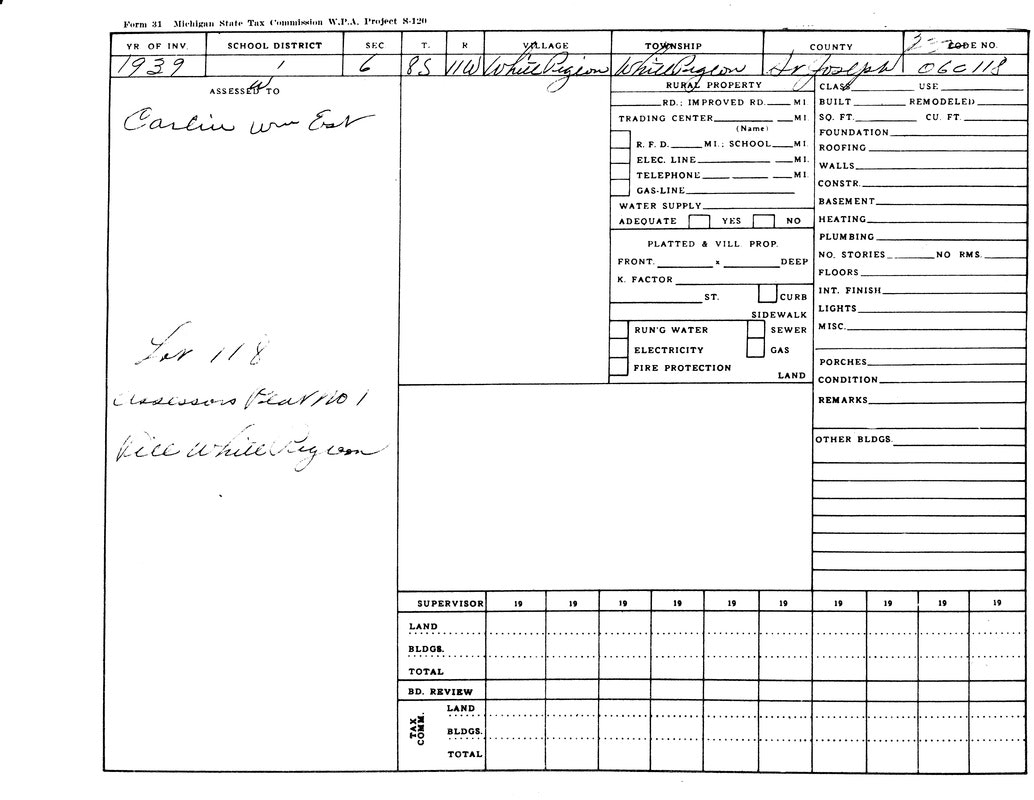 Form 31 Michigan State Tax Commission W.P.A. Project S-120
YR OF INV. SCHOOL DISTRICT SEC T. R VILLAGE TOWNSHIP COUNTY CODE NO.
1939 1 6 8S 11W White Pigeon White Pigeon St Joseph 06C118
ASSESSED TO
Carlin Wm Est
Lot 118
Assessors Plat No 1
Vill White Pigeon
RURAL PROPERTY
RD.; IMPROVED RD. MI.
TRADING CENTER MI.
(Name)
R. F. D. MI.; SCHOOL MI.
ELEC. LINE MI.
TELEPHONE MI.
GAS-LINE
WATER SUPPLY
ADEQUATE YES NO
PLATTED & VILL PROP.
FRONT. x DEEP
K. FACTOR
ST. CURB
SIDEWALK
RUN'G WATER SEWER
ELECTRICITY GAS
FIRE PROTECTION
LAND
CLASS USE
BUILT REMODELED
SQ. FT. CU. FT.
FOUNDATION
ROOFING
WALLS
CONSTR.
BASEMENT
HEATING
PLUMBING
NO. STORIES NO RMS.
FLOORS
INT. FINISH
LIGHTS
MISC.
PORCHES
CONDITION
REMARKS
OTHER BLDGS.
SUPERVISOR 19 19 19 19 19 19 19 19 19 19
LAND
BLDGS.
TOTAL
BD. REVIEW
TAX COMM.
LAND
BLDGS.
TOTAL